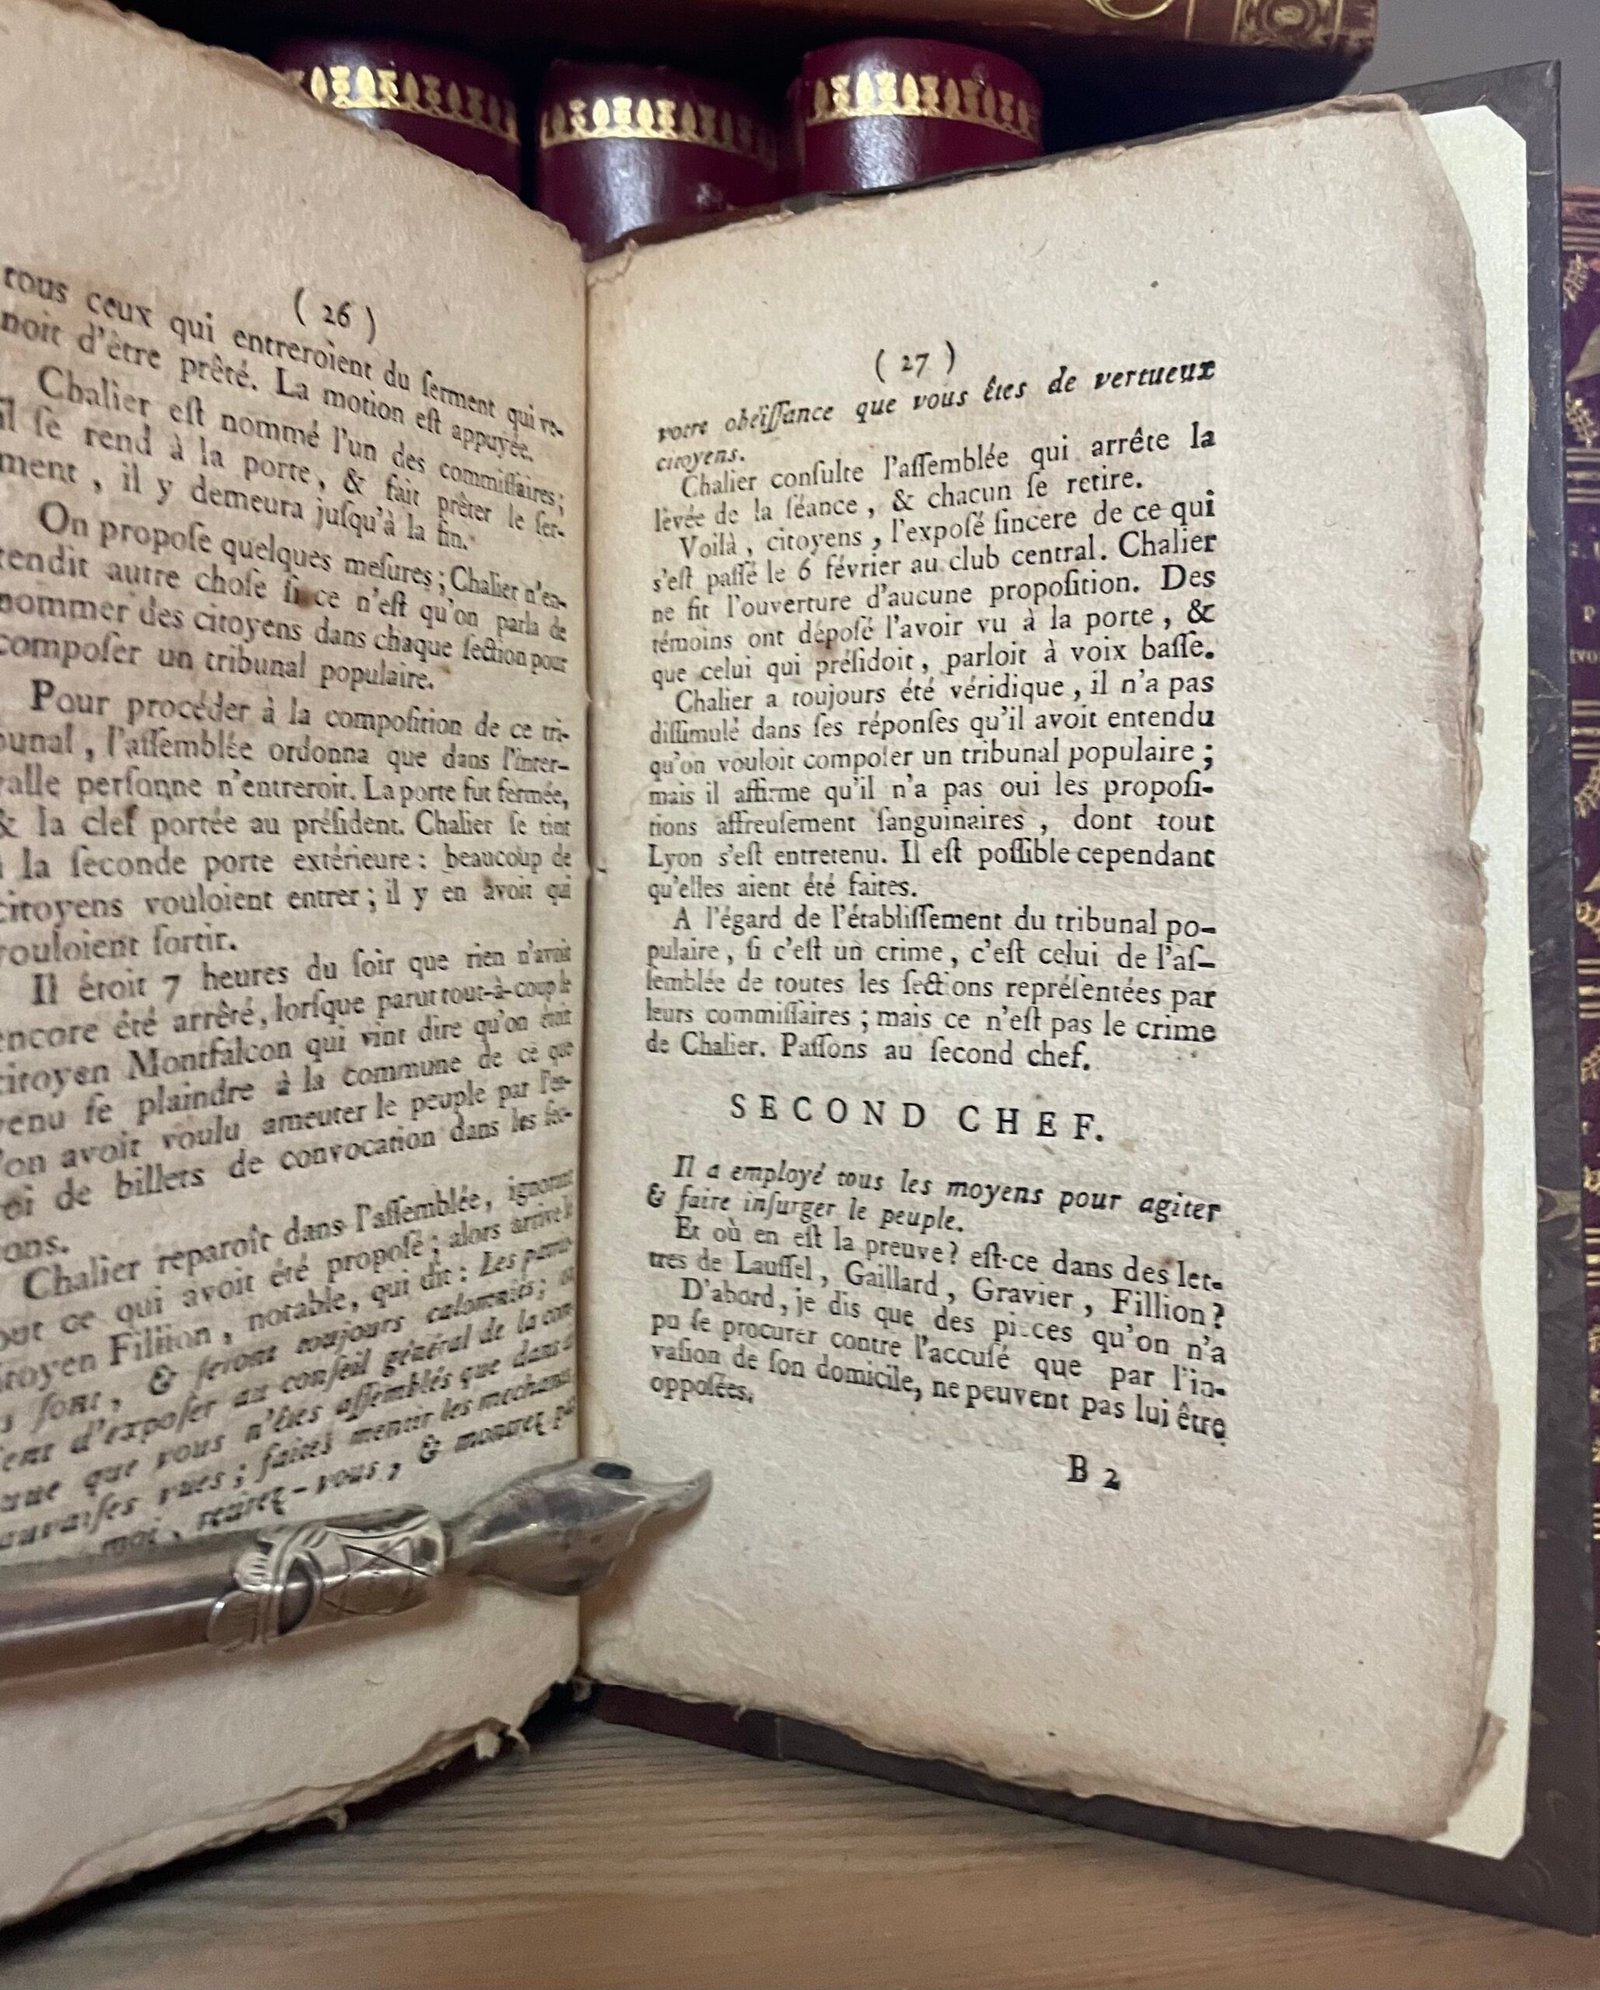 ( 26 )
tous ceux qui entreroient du ſerment qui ve-
noit d'être prêté. La motion eſt appuyée.
Chalier eſt nommé l'un des commiſſaires ;
il ſe rend à la porte, & fait prêter le ſer-
ment , il y demeura juſqu'à la fin.
On propoſe quelques meſures ; Chalier n'en-
tendit autre choſe ſi ce n'eſt qu'on parla de
nommer des citoyens dans chaque ſection pour
compoſer un tribunal populaire.
Pour procéder à la compoſition de ce tri-
bunal , l'aſſemblée ordonna que dans l'inter-
valle perſonne n'entreroit. La porte fut fermée,
& la clef portée au préſident. Chalier ſe tint
à la ſeconde porte extérieure : beaucoup de
citoyens vouloient entrer ; il y en avoit qui
vouloient ſortir.
Il étoit 7 heures du ſoir que rien n'avoit
encore été arrêté, lorſque parut tout-à-coup le
citoyen Montfalcon qui vint dire qu'on étoit
venu ſe plaindre à la commune de ce que
l'on avoit voulu ameuter le peuple par l'en-
voi de billets de convocation dans les ſec-
tions.
Chalier reparoît dans l'aſſemblée, ignorant
tout ce qui avoit été propoſé ; alors arrive le
citoyen Fillion , notable, qui dit : Les patrio-
ſont , & ſeront toujours calomniés ;
d'expoſer au conſeil général de la com-
que vous n'êtes aſſemblés que dans d
mauvaiſes vues ; faites mentir les méchans
moi , retirez-vous , & montrez par
( 27 )
votre obéiſſance que vous êtes de vertueux
citoyens.
Chalier conſulte l'aſſemblée qui arrête la
levée de la ſéance , & chacun ſe retire.
Voilà , citoyens , l'expoſé ſincere de ce qui
s'eſt paſſé le 6 février au club central. Chalier
ne fit l'ouverture d'aucune propoſition. Des
témoins ont dépoſé l'avoir vu à la porte , &
que celui qui préſidoit , parloit à voix baſſe.
Chalier a toujours été véridique , il n'a pas
diſſimulé dans ſes réponſes qu'il avoit entendu
qu'on vouloit compoſer un tribunal populaire ;
mais il affirme qu'il n'a pas oui les propoſi-
tions affreuſement ſanguinaires , dont tout
Lyon s'eſt entretenu. Il eſt poſſible cependant
qu'elles aient été faites.
A l'égard de l'établiſſement du tribunal po-
pulaire , ſi c'eſt un crime , c'eſt celui de l'aſ-
ſemblée de toutes les ſections repréſentées par
leurs commiſſaires ; mais ce n'eſt pas le crime
de Chalier. Paſſons au ſecond chef.
SECOND CHEF.
Il a employé tous les moyens pour agiter
& faire inſurger le peuple.
Et où en eſt la preuve ? eſt-ce dans des let-
tres de Lauſſel , Gaillard , Gravier , Fillion ?
D'abord , je dis que des pieces qu'on n'a
pu ſe procurer contre l'accuſé que par l'in-
vaſion de ſon domicile, ne peuvent pas lui être
oppoſées.
B 2